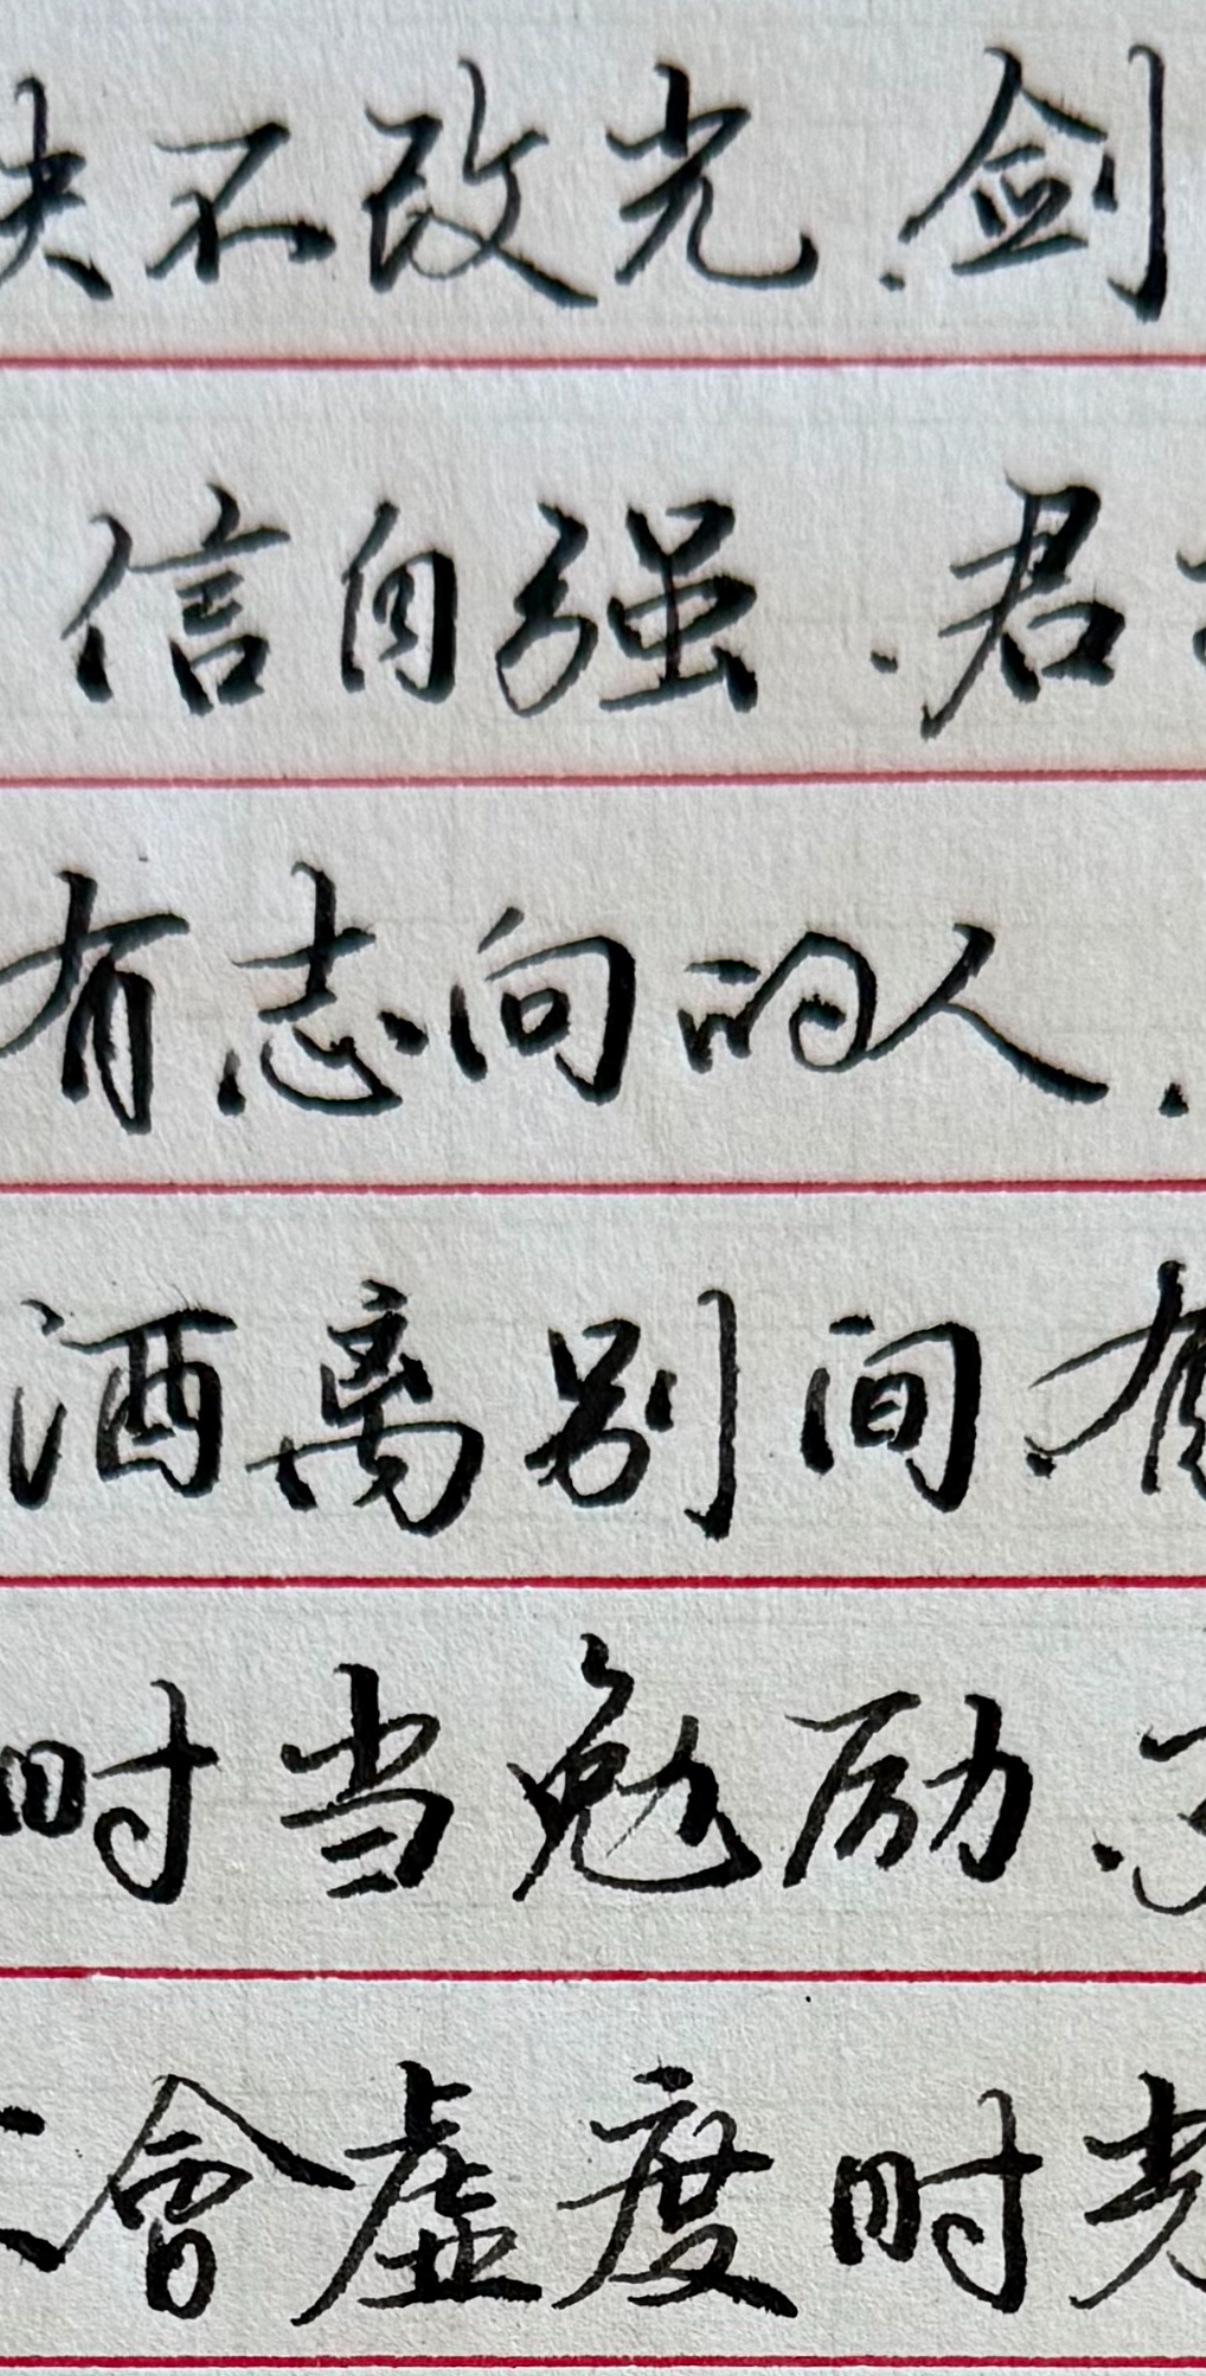 不改光.剑
信自强.君
有志向的人.
酒离别间.有
时当勉励.
會虚度时光